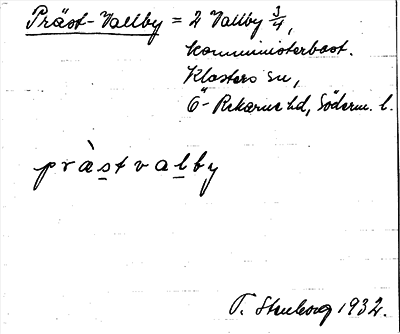 Präst-Vallby = 2 Vallby 3/4,
komministerbost.
Klosters sn,
Ö-Rekarne hd, Söderm. l.
prä̀stvalby
T. Stenborg 1932.